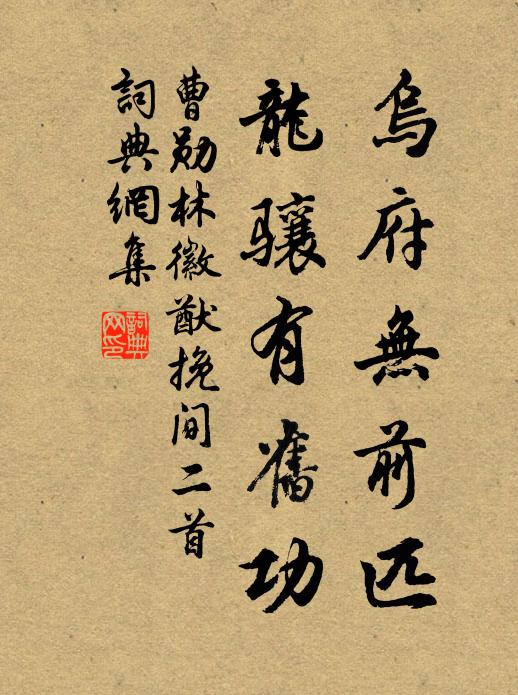 烏府無前匹
龍驤有舊功
曹勛林徽猷挽间二首
詞典網集
詞典網印